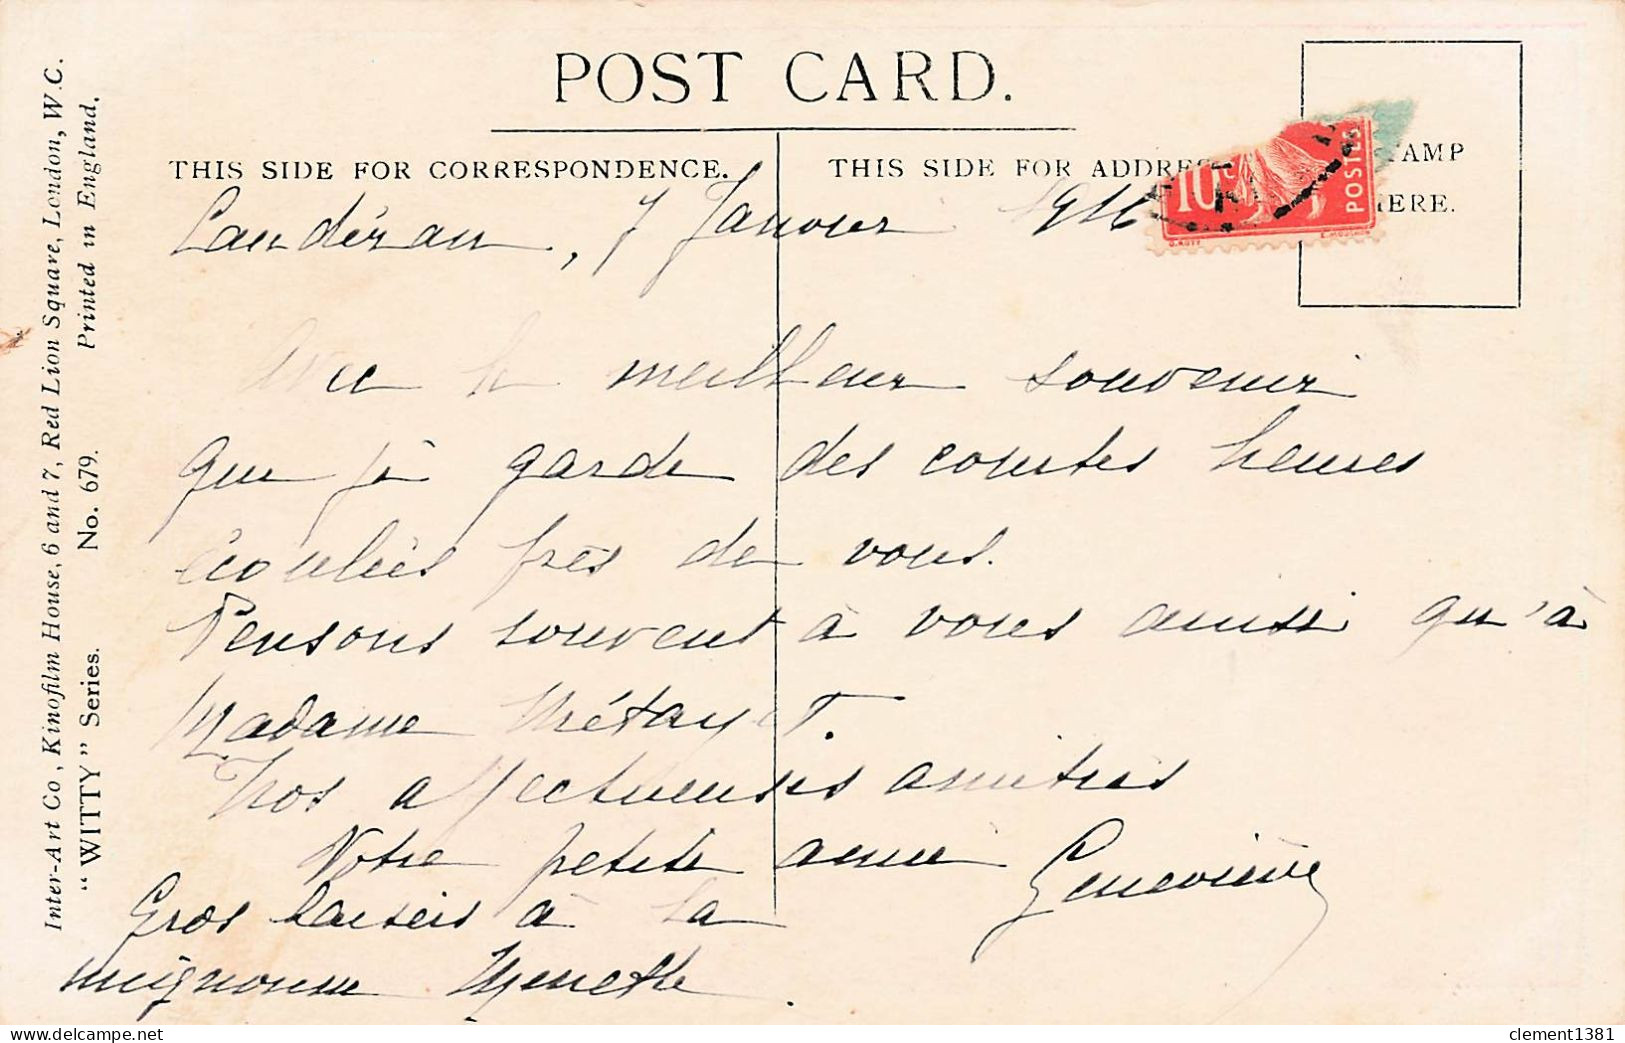 POST CARD.
THIS SIDE FOR CORRESPONDENCE.
THIS SIDE FOR ADDRE
AMP
ERE.
10c
POSTES
Caudéran, 7 Janvier 1916
Avec le meilleur souvenir
que j'ai gardé des courtes heures
écoulées près de vous.
Pensons souvent à vous ainsi qu'à
Madame Métayer T.
Nos affectueuses amitiés
Votre petite amie Geneviève
Gros baisers à la
mignonne
Inter-Art Co., Kinofilm House, 6 and 7, Red Lion Square, London, W.C.
"WITTY" Series. No. 679. Printed in England.
clement1381